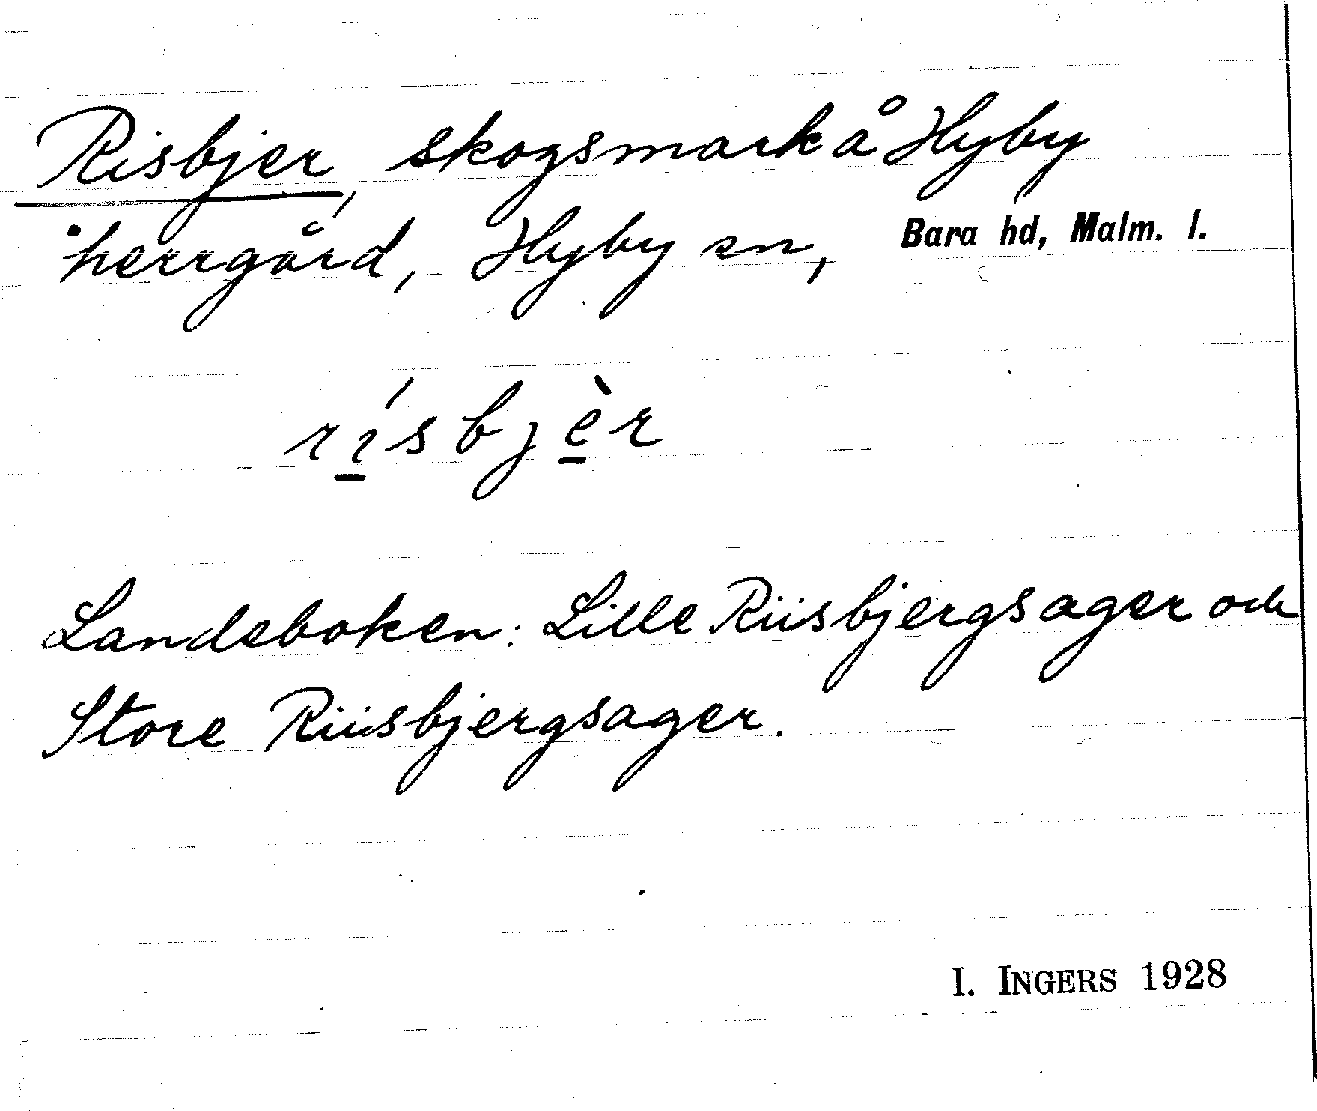 Risbjer, skogsmark å Hyby
herrgård, Hyby sn, Bara hd, Malm. l.
rí̱sbjè̱r
Landeboken: Lille Riisbjergsager och
Store Riisbjergsager.
I. INGERS 1928